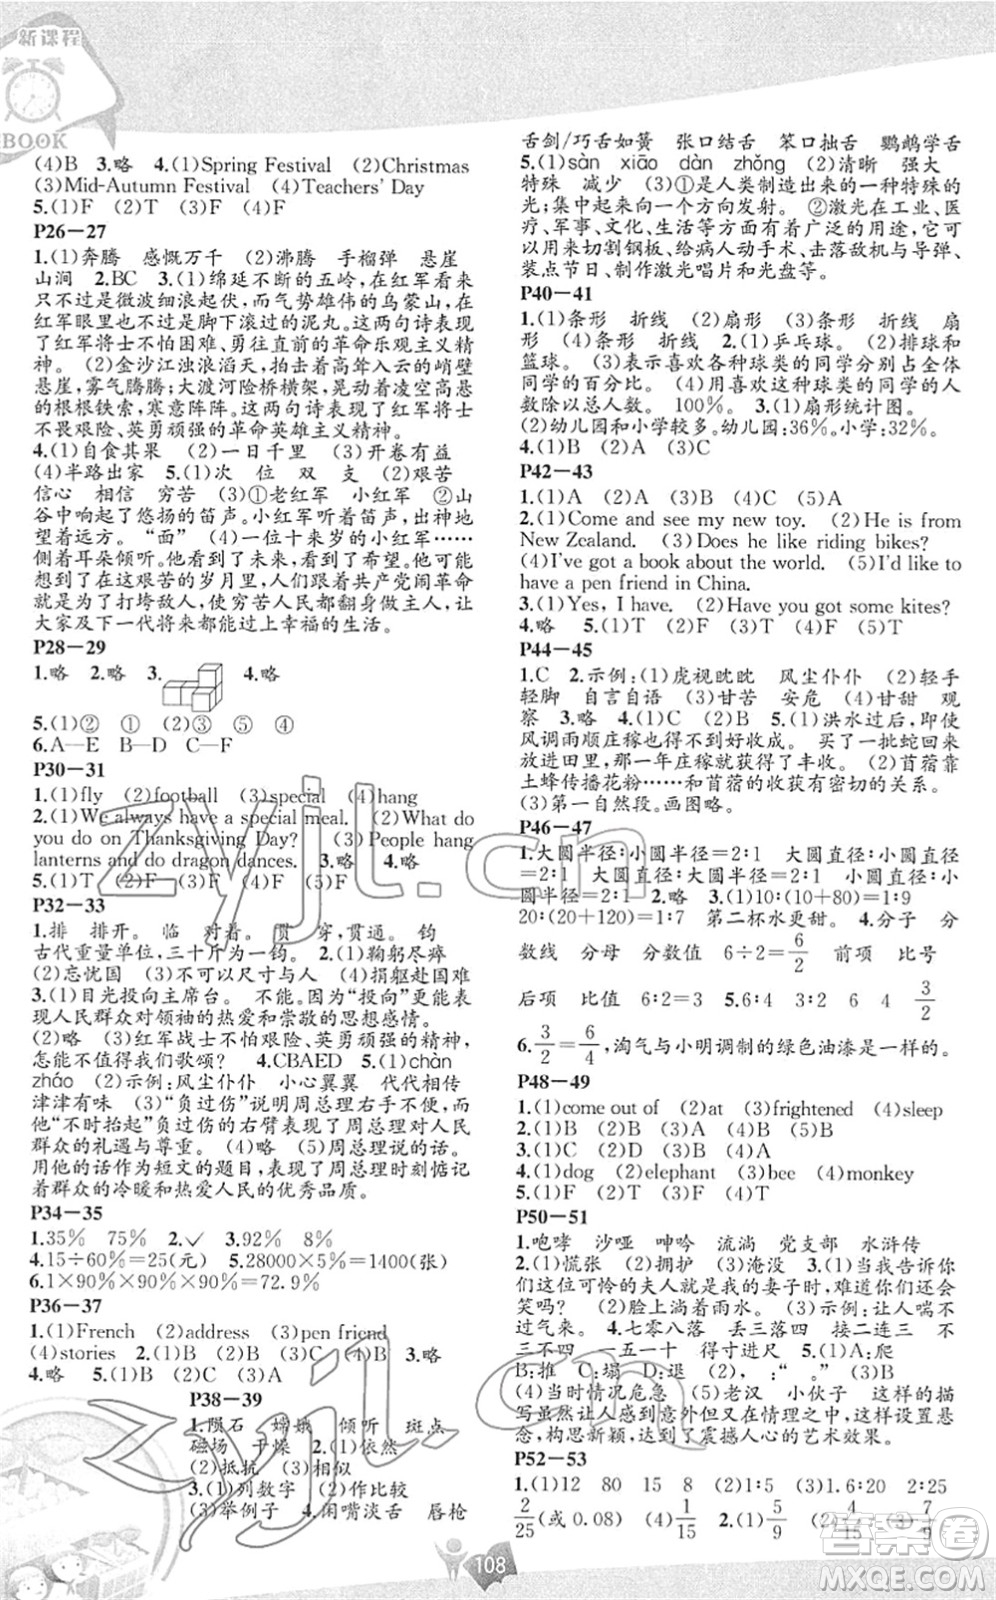 新课程
BOOK
(4)B　3.略　4.(1)Spring Festival　(2)Christmas
(3)Mid-Autumn Festival　(4)Teachers' Day
5.(1)F　(2)T　(3)F　(4)F
P26—27
1.(1)奔腾　感慨万千　(2)沸腾　手榴弹　悬崖
山涧　2.BC　3.(1)绵延不断的五岭,在红军看来
只不过是微波细浪起伏,而气势雄伟的乌蒙山,
在红军眼里也不过是脚下滚过的泥丸。这两句诗表现
了红军将士不怕困难、勇往直前的革命乐观主义精
神。　(2)金沙江浊浪滔天,拍击着高耸入云的峭壁
悬崖,雾气腾腾;大渡河险桥横架,晃动着凌空高悬
的根根铁索,寒意阵阵。这两句诗表现了红军将士
不畏艰险、英勇顽强的革命英雄主义精神。
4.(1)自食其果　(2)一日千里　(3)开卷有益
(4)半路出家　5.(1)次　位　双　支　(2)艰苦
信心　相信　穷苦　(3)①老红军　小红军　②山
谷中响起了悠扬的笛声。小红军听着笛声,出神地
望着远方。　“面”　(4)一位十来岁的小红军……
侧着耳朵倾听。他看到了未来,看到了希望。他可能
想到了在这艰苦的岁月里,我们共产党闹革命
是为了打垮敌人,使穷苦人民都翻身做主人,让
大家及下一代将来都能过上幸福的生活。
P28—29
1.略　2.略　3.　4.略
5.(1)②　①　(2)③　⑤　④
6.A—E　B—D　C—F
P30—31
1.(1)fly　(2)football　(3)special　(4)hang
2.(1)We always have a special meal.　(2)What do
you do on Thanksgiving Day?　(3)People hang
lanterns and do dragon dances.　3.略　4.略
5.(1)T　(2)F　(3)F　(4)F
P32—33
1.排　排开。　临　对着。　贯　穿,贯通。　钧
古代重量单位,三十斤为一钧。　2.(1)鞠躬尽瘁
(2)忘忧国　(3)不可以尺寸与人　(4)捐躯赴国难
3.(1)目光投向主席台。　不能。因为“投向”更能表
现人民群众对领袖的热爱和崇敬的思想感情。
(2)略　(3)红军战士不怕艰险、英勇顽强的精神,
怎能不值得我们歌颂?　4.CBAED　5.(1)chàn
zháo　(2)示例:风尘仆仆　小心翼翼　代代相传
津津有味　(3)“负过伤”说明周总理右手不便,而
他“不时抬起”负过伤的右臂表现了周总理对人民
群众的礼遇与尊重。　(4)略　(5)周总理说的话。
用他的话作为短文的题目,表现了周总理时刻惦记
着群众的冷暖和热爱人民的优秀品质。
P34—35
1.35%　75%　2.✓　3.92%　8%
4.15÷60%=25(元)　5.28000×5%=1400(张)
6.1×90%×90%×90%=72.9%
P36—37
1.(1)French　(2)address　(3)pen friend
(4)stories　2.(1)B　(2)B　(3)C　(4)B　3.略
4.略　5.(1)B　(2)C　(3)A
P38—39
1.陨石　嫦娥　倾听　斑点
磁场　干燥　2.(1)依然
(2)抵抗　(3)相似
3.(1)列数字　(2)作比较
(3)举例子　4.闲嘴淡舌　唇枪
舌剑/巧舌如簧　张口结舌　笨口拙舌　鹦鹉学舌
5.(1)sàn　xiāo　dàn　zhǒng　(2)清晰　强大
特殊　减少　(3)①是人类制造出来的一种特殊的
光;集中起来向一个方向发射。　②激光在工业、医
疗、军事、文化、生活等方面有着广泛的用途,它可
以用来切割钢板、给病人动手术、击落敌机与导弹、
装点节日、制作激光唱片和光盘等。
P40—41
1.(1)条形　折线　(2)扇形　(3)条形　折线　扇
形　(4)条形　折线　2.(1)乒乓球。　(2)排球和
篮球。　(3)表示喜欢各种球类的同学分别占全体
同学的百分比。　(4)用喜欢这种球类的同学的人
数除以总人数。　100%。　3.(1)扇形统计图。
(2)幼儿园和小学较多。幼儿园:36%。小学:32%。
4.(1)B　(2)A　(3)C
P42—43
1.(1)A　(2)A　(3)B　(4)C　(5)A
2.(1)Come and see my new toy.　(2)He is from
New Zealand.　(3)Does he like riding bikes?
(4)I've got a book about the world.　(5)I'd like to
have a pen friend in China.
3.(1)Yes, I have.　(2)Have you got some kites?
4.略　5.(1)T　(2)F　(3)F　(4)F　(5)T
P44—45
1.C　2.示例:(1)虎视眈眈　风尘仆仆　(2)轻手
轻脚　自言自语　(3)甘苦　安危　(4)甘甜　观
察　3.略　4.(1)C　(2)A　5.(1)洪水过后,即使
风调雨顺庄稼也得不到好收成。　买了一批蛇回来
放进田里,那一年庄稼就获得了丰收。　(2)苜蓿靠
土蜂传播花粉……和苜蓿的收获有密切的关系。
(3)第一自然段。画图略。
P46—47
1.大圆半径:小圆半径=2:1　大圆直径:小圆直径
=2:1　大圆直径:大圆半径=2:1　小圆直径:小
圆半径=2:1　2.略　3.(1)10:(10+80)=1:9
20:(20+120)=1:7　第二杯水更甜。　4.分子　分
数线　分母　分数值　6÷2=6/2　前项　比号
后项　比值　6:2=3　5.6:4　3:2　6　4　3/2
6.3/2=6/4,淘气与小明调制的绿色油漆是一样的。
P48—49
1.(1)come out of　(2)at　(3)frightened　(4)sleep
2.(1)B　(2)B　(3)A　(4)B　(5)B
3.(1)C　(2)D　(3)B　(4)A
4.(1)dog　(2)elephant　(3)bee　(4)monkey
5.(1)F　(2)T　(3)F　(4)T
P50—51
1.咆哮　沙哑　呻吟　流淌　党支部　水浒传
2.(1)慌张　(2)拥护　(3)淹没　3.(1)当我告诉你
们这位可怜的夫人就是我的妻子时,难道你们还会
笑吗?　(2)脸上淌着雨水。　(3)示例:让人喘不
过气来。　4.七零八落　丢三落四　接二连三　不
三不四　一五一十　得寸进尺　5.(1)A:爬
B:推　C:塌　D:退　(2)，　:　“　。　”　(3)C
(4)当时情况危急　(5)老汉　小伙子　这样的描
写虽然让人感到意外但又在情理之中,这样设置悬
念,构思新颖,达到了震撼人心的艺术效果。
P52—53
1.(1)12　80　15　8　(2)1:5　(3)1.6:20　2:25
2/25(或 0.08)　(4)1/15　2.(1)5/9　(2)4/15　(3)7/9
108
zyjl.cn
zyjl.cn
答案圈
MXQE.COM